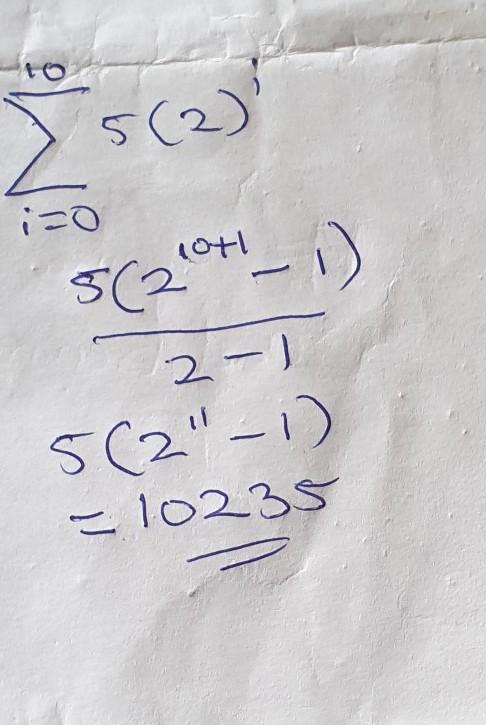 10
∑ 5(2)^i
i=0
5(2^10+1 - 1)
2-1
5(2^11 - 1)
= 10235